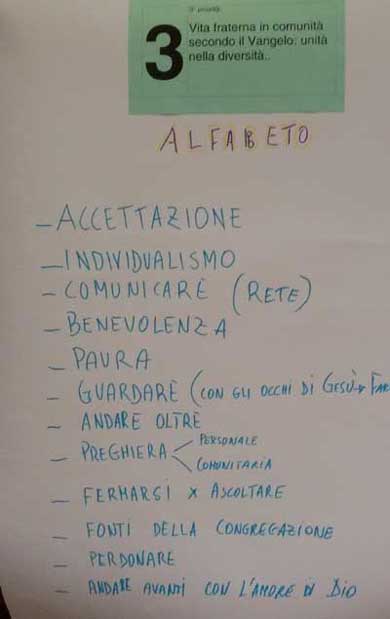 3ª priorità:
3
Vita fraterna in comunità
secondo il Vangelo: unità
nella diversità..
ALFABETO
- ACCETTAZIONE
- INDIVIDUALISMO
- COMUNICARE (RETE)
- BENEVOLENZA
- PAURA
- GUARDARE (CON GLI OCCHI DI GESÙ
- ANDARE OLTRE
- PREGHIERA PERSONALE
COMUNITARIA
- FERMARSI x ASCOLTARE
- FONTI DELLA CONGREGAZIONE
- PERDONARE
- ANDARE AVANTI CON L'AMORE DI DIO